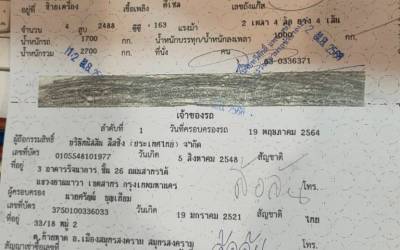 อยู่ที่ ซ้ายเครื่อง เชื้อเพลิง ดีเซล เลขถังแก๊ส
จำนวน 4 สูบ 2488 ซีซี 163 แรงม้า 2 เพลา 4 ล้อ ยาง 4 เส้น
น้ำหนักรถ 1700 กก. น้ำหนักบรรทุก/น้ำหนักลงเพลา 1000 กก.
น้ำหนักรวม 2700 กก. ที่นั่ง คน
63-0336371
เจ้าของรถ
ลำดับที่ 1 วันที่ครอบครองรถ 19 พฤษภาคม 2564
ผู้ถือกรรมสิทธิ์ บริษัทนิสสัน ลีสซิ่ง (ประเทศไทย) จำกัด
เลขที่บัตร 0105548101977 วันเกิด 5 สิงหาคม 2548 สัญชาติ
ที่อยู่ 3 อาคารรัจนาการ ชั้น 26 ถนนสาทรใต้
แขวงยานนาวา เขตสาทร กรุงเทพมหานคร โทร.
ผู้ครอบครอง
เลขที่บัตร 3750100336033 วันเกิด 19 มกราคม 2521 สัญชาติ ไทย
ที่อยู่ 33/18 หมู่ 2
อ.เมืองสมุทรสงคราม สมุทรสงคราม โทร.